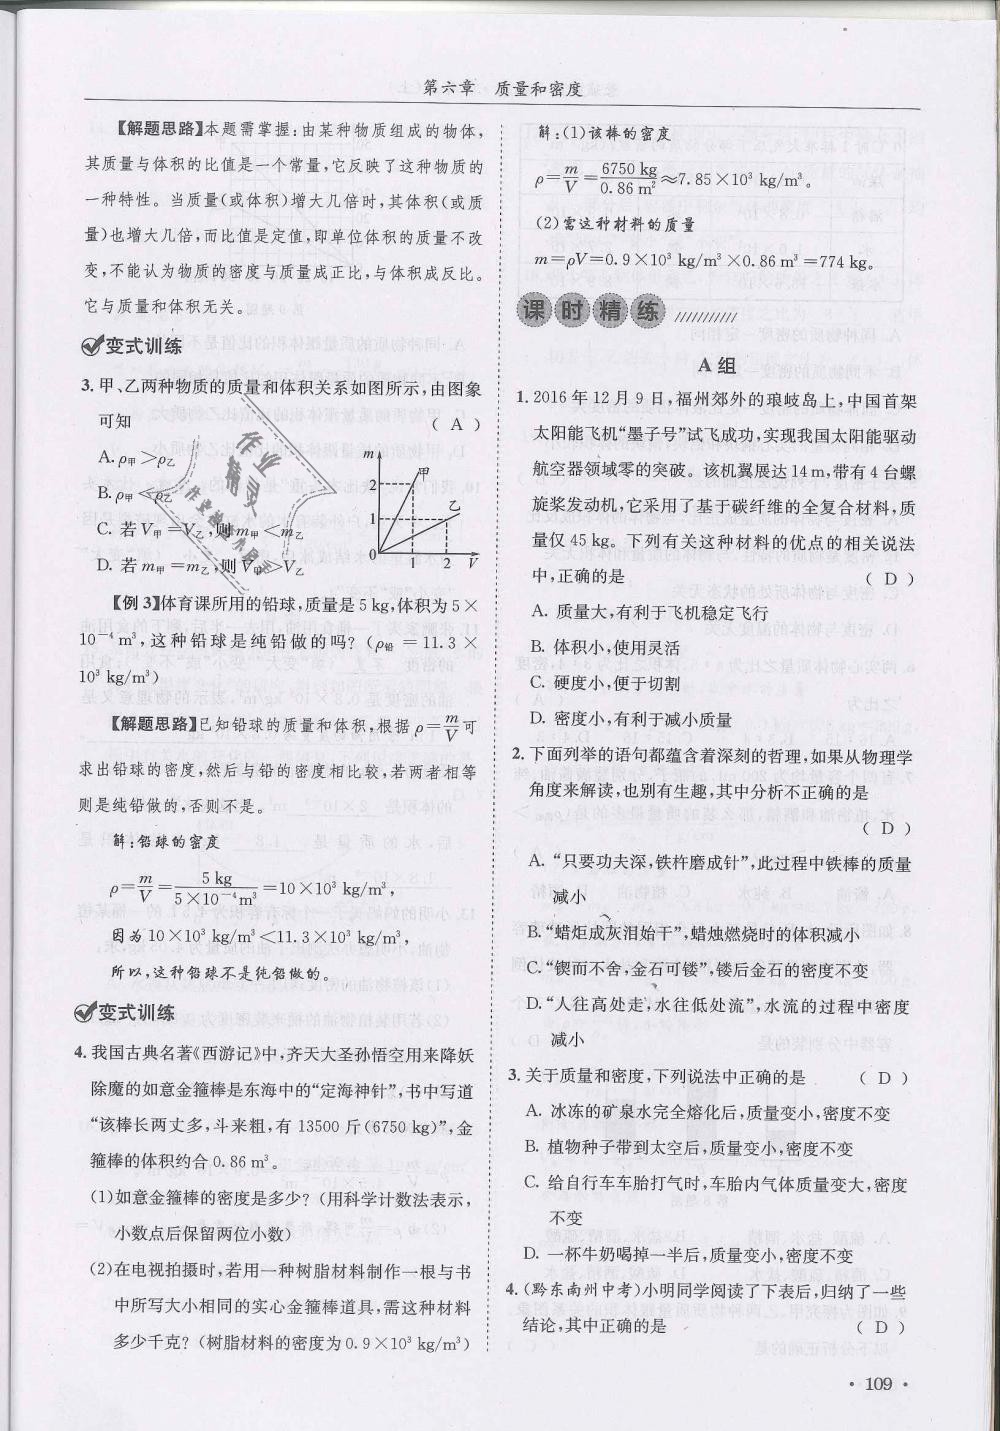 第六章 质量和密度
【解题思路】本题需掌握:由某种物质组成的物体,
其质量与体积的比值是一个常量,它反映了这种物质的
一种特性。当质量(或体积)增大几倍时,其体积(或质
量)也增大几倍,而比值是定值,即单位体积的质量不改
变,不能认为物质的密度与质量成正比,与体积成反比。
它与质量和体积无关。
变式训练
3. 甲、乙两种物质的质量和体积关系如图所示,由图象
可知 ( A )
A. ρ甲>ρ乙
B. ρ甲<ρ乙
C. 若 V甲=V乙,则m甲<m乙
D. 若 m甲=m乙,则V甲>V乙
m
甲
2
乙
1
0 1 2 V
【例 3】体育课所用的铅球,质量是 5 kg,体积为 5×
10⁻⁴ m³,这种铅球是纯铅做的吗?(ρ铅 = 11.3 ×
10³ kg/m³)
【解题思路】已知铅球的质量和体积,根据 ρ=m/V可
求出铅球的密度,然后与铅的密度相比较,若两者相等
则是纯铅做的,否则不是。
解:铅球的密度
ρ=m/V=5 kg/5×10⁻⁴m³=10×10³ kg/m³,
因为 10×10³ kg/m³<11.3×10³ kg/m³,
所以,这种铅球不是纯铅做的。
变式训练
4. 我国古典名著《西游记》中,齐天大圣孙悟空用来降妖
除魔的如意金箍棒是东海中的“定海神针”,书中写道
“该棒长两丈多,斗来粗,有 13500 斤(6750 kg)”,金
箍棒的体积约合 0.86 m³。
(1)如意金箍棒的密度是多少?(用科学计数法表示,
小数点后保留两位小数)
(2)在电视拍摄时,若用一种树脂材料制作一根与书
中所写大小相同的实心金箍棒道具,需这种材料
多少千克?(树脂材料的密度为 0.9×10³ kg/m³)
解:(1)该棒的密度
ρ=m/V=6750 kg/0.86 m³≈7.85×10³ kg/m³。
(2)需这种材料的质量
m=ρV=0.9×10³ kg/m³×0.86 m³=774 kg。
课时精练
A 组
1. 2016 年 12 月 9 日,福州郊外的琅岐岛上,中国首架
太阳能飞机“墨子号”试飞成功,实现我国太阳能驱动
航空器领域零的突破。该机翼展达 14 m,带有 4 台螺
旋桨发动机,它采用了基于碳纤维的全复合材料,质
量仅 45 kg。下列有关这种材料的优点的相关说法
中,正确的是 ( D )
A. 质量大,有利于飞机稳定飞行
B. 体积小,使用灵活
C. 硬度小,便于切割
D. 密度小,有利于减小质量
2. 下面列举的语句都蕴含着深刻的哲理,如果从物理学
角度来解读,也别有生趣,其中分析不正确的是
( D )
A. “只要功夫深,铁杵磨成针”,此过程中铁棒的质量
减小
B. “蜡炬成灰泪始干”,蜡烛燃烧时的体积减小
C. “锲而不舍,金石可镂”,镂后金石的密度不变
D. “人往高处走,水往低处流”,水流的过程中密度
减小
3. 关于质量和密度,下列说法中正确的是 ( D )
A. 冰冻的矿泉水完全熔化后,质量变小,密度不变
B. 植物种子带到太空后,质量变小,密度不变
C. 给自行车车胎打气时,车胎内气体质量变大,密度
不变
D. 一杯牛奶喝掉一半后,质量变小,密度不变
4. (黔东南州中考)小明同学阅读了下表后,归纳了一些
结论,其中正确的是 ( D )
· 109 ·